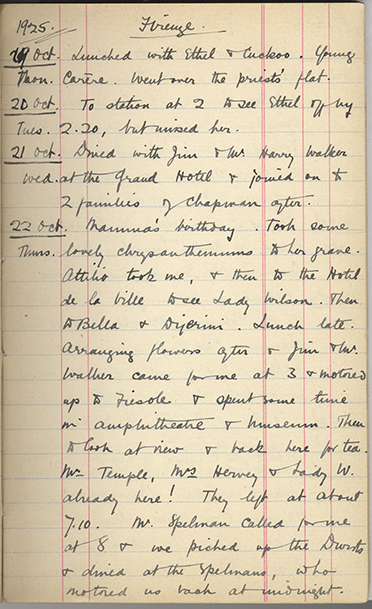 1925. Firenze.
19 Oct. Lunched with Ethel & Cuckoo. Young
Mon. Carère. Went over the priests' flat.
20 Oct. To station at 2 to see Ethel off by
Tues. 2.20, but missed her.
21 Oct. Dined with Jim & Mr. Harry Walker
Wed. at the Grand Hotel & joined on to
2 families of Chapman after.
22 Oct. Mamma's birthday. Took some
Thurs. lovely chrysanthemums to her grave.
Attilio took me, & then to the Hotel
de la Ville to see Lady Wilson. Then
to Bella & Digerini. Lunch late.
Arranging flowers after & Jim & Mr.
Walker came for me at 3 & motored
up to Fiesole & spent some time
in amphitheatre & museum. Then
to look at view & back here for tea.
Mr Temple, Mrs Hervey & Lady W.
already here! They left at about
7.10. Mr. Spelman called for me
at 8 & we picked up the
& dined at the Spelmans, who
motored us back at midnight.